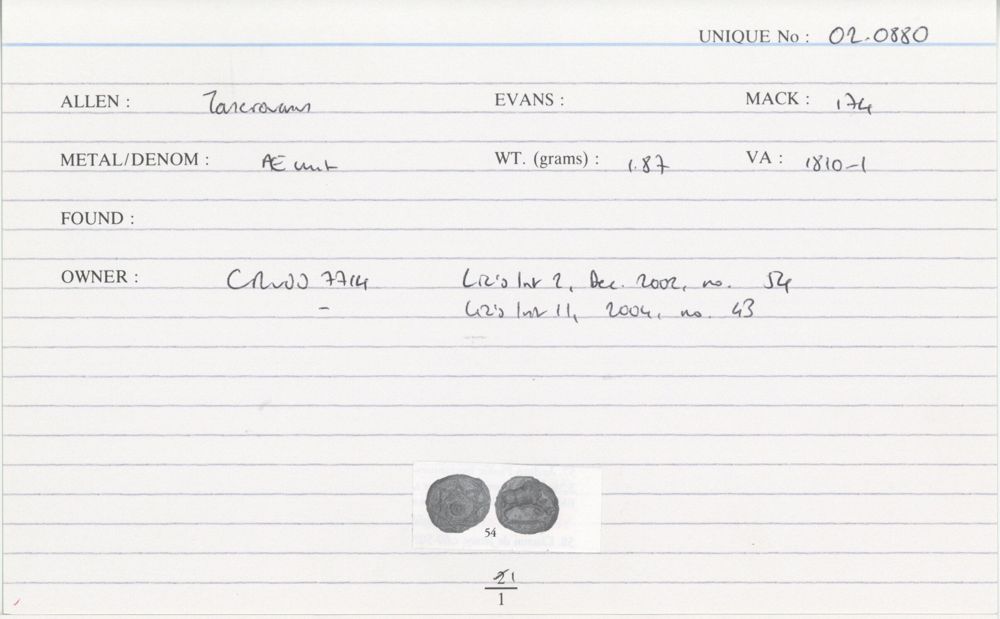 UNIQUE No : 02.0880
ALLEN : Tasciovanus EVANS : MACK : 174
METAL/DENOM : AE unit WT. (grams) : 1.87 VA : 1810-1
FOUND :
OWNER : CR 7714 Liz's list 2, Dec. 2002, no. 54
– Liz's list 11, 2004, no. 43
54
21
1